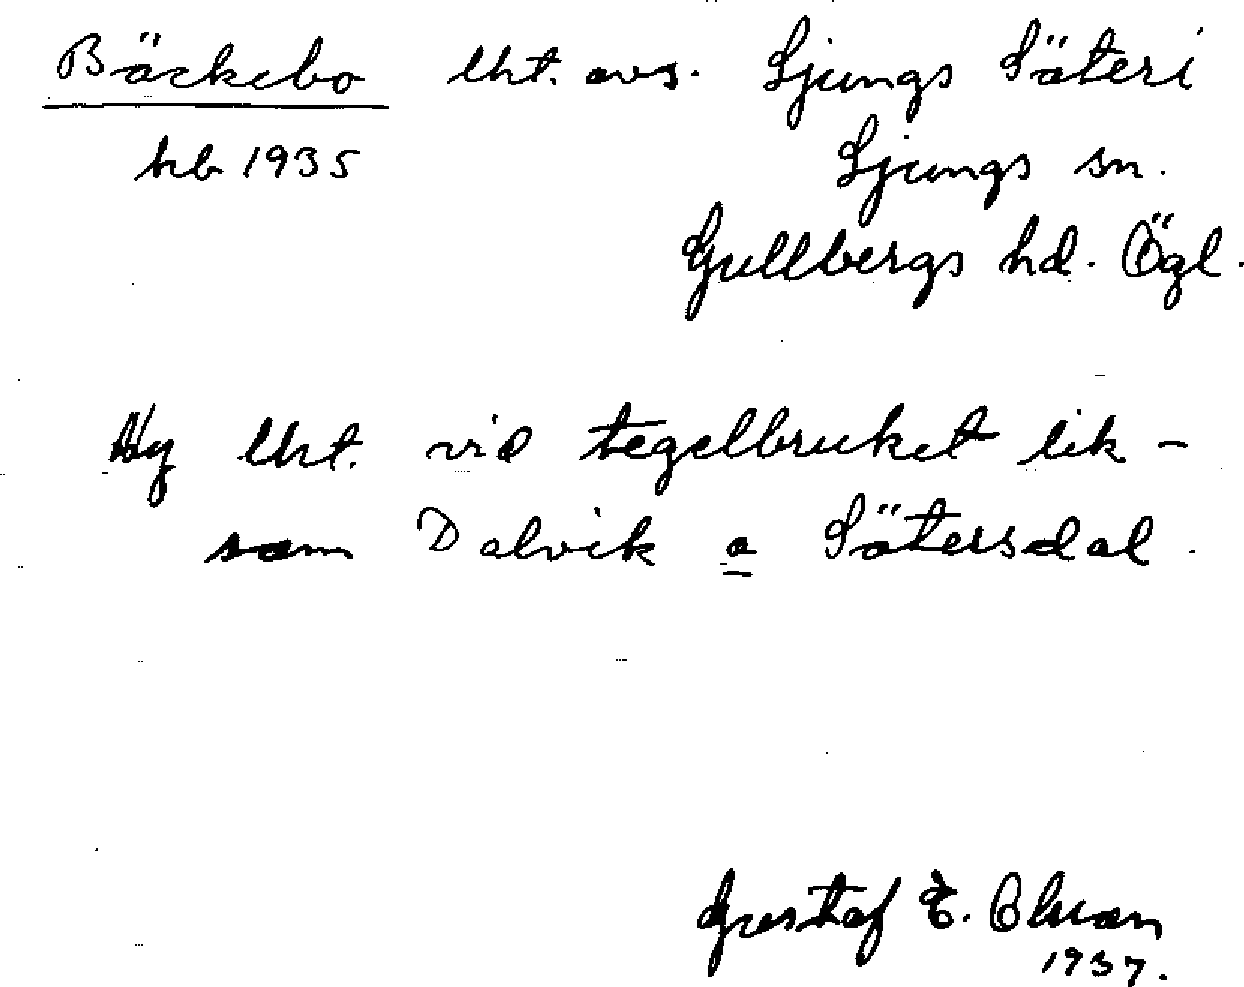 Bäckebo lht. avs. Ljungs Säteri
hb 1935 Ljungs sn.
Gullbergs hd. Ögl.
Ny lht. vid tegelbruket lik-
som Dalvik o Sätersdal.
Gustaf E.
1937.